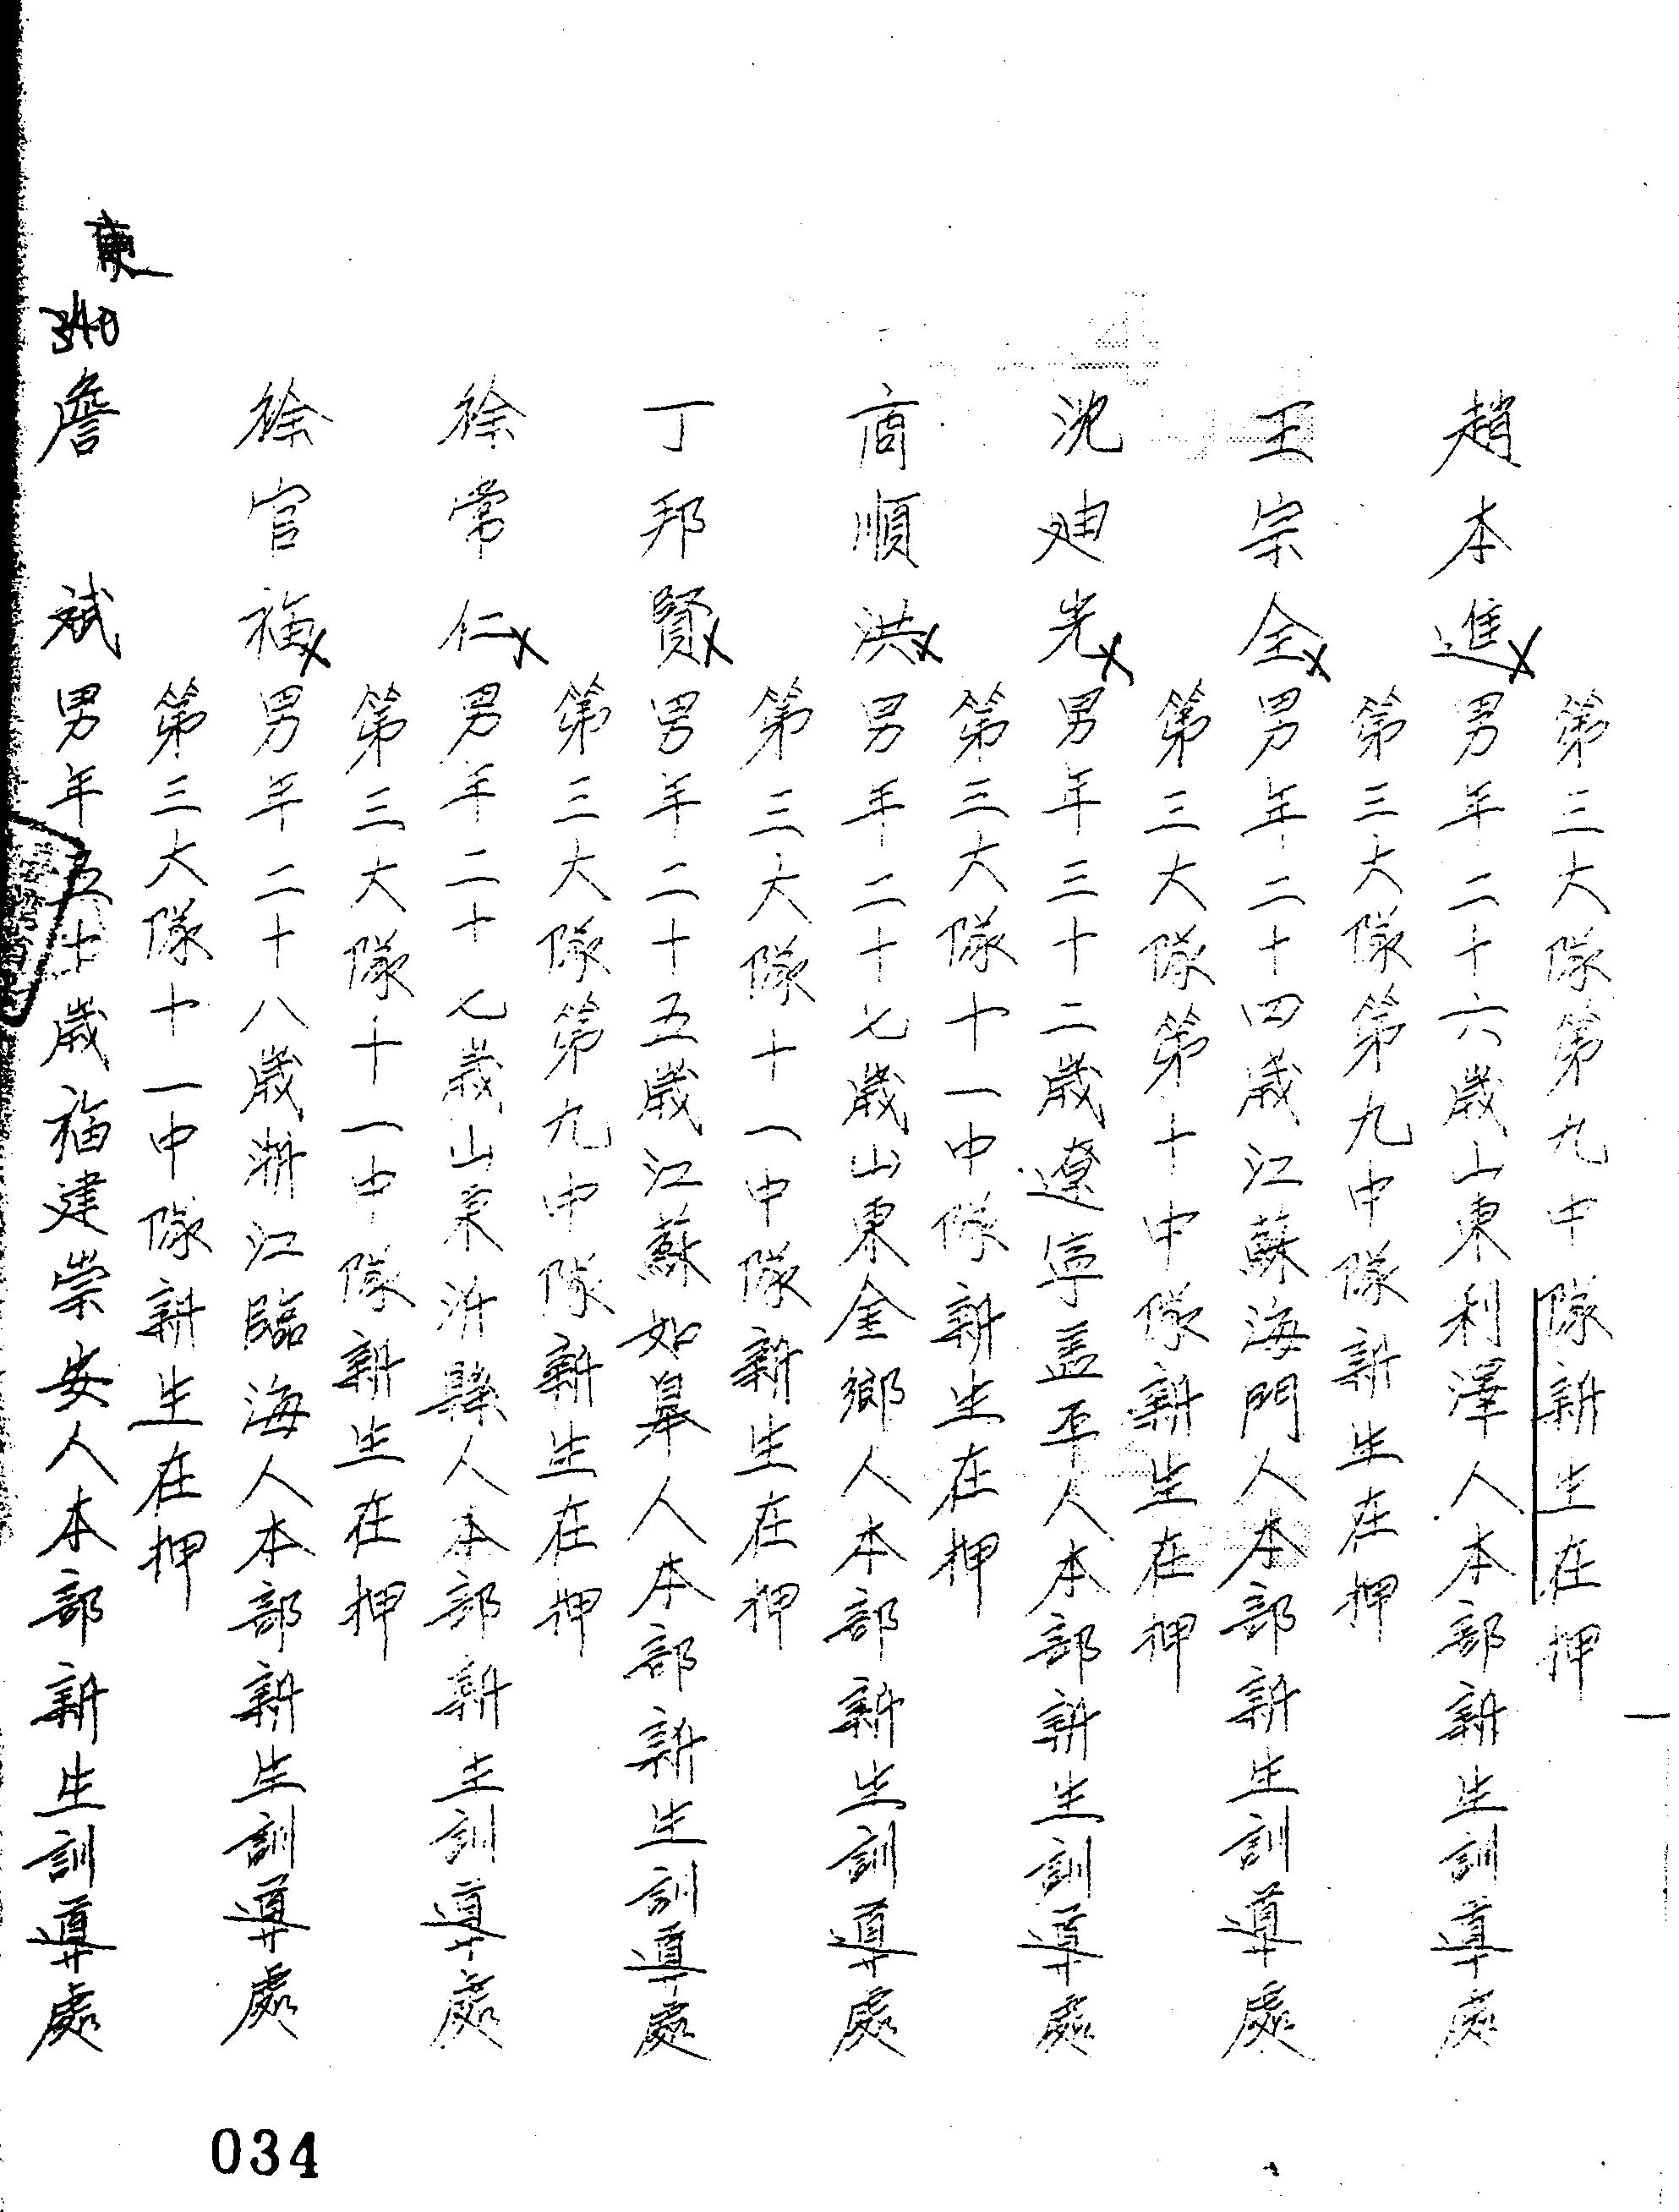 第三大隊第九中隊新生在押
趙本進 男年二十六歲山東利澤人本部新生訓導處
第三大隊第九中隊新生在押
王宗全 男年二十四歲江蘇海門人本部新生訓導處
第三大隊第十中隊新生在押
沈廸光 男年三十二歲遼寧蓋平人本部新生訓導處
第三大隊十一中隊新生在押
商順洪 男年二十七歲山東金鄉人本部新生訓導處
第三大隊十一中隊新生在押
丁邦賢 男年二十五歲江蘇如皋人本部新生訓導處
第三大隊第九中隊新生在押
徐常仁 男年二十七歲山東沂縣人本部新生訓導處
第三大隊十一中隊新生在押
徐官福 男年二十八歲浙江臨海人本部新生訓導處
第三大隊十一中隊新生在押
340
詹斌 男年五十歲福建崇安人本部新生訓導處
034